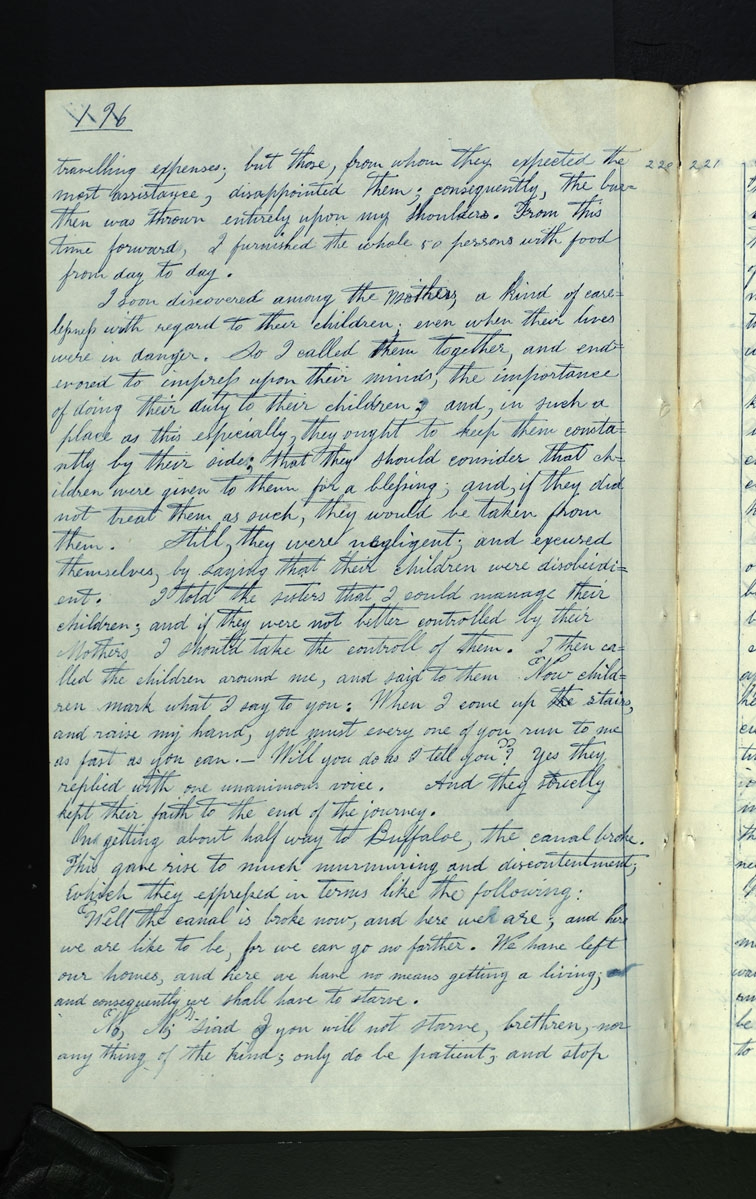 196
travelling expenses; but those, from whom they expected the
most assistance, disappointed them; consequently, the bur=
then was thrown entirely upon my shoulders. From this
time forward, I furnished the whole 50 persons with food
from day to day.
I soon discovered among the mothers, a kind of care=
lessness with regard to their children; even when their lives
were in danger. So I called them together, and end=
evored to impress upon their minds, the importance
of doing their duty to their children; and, in such a
place as this especially, they ought to keep them consta=
ntly by their side; that they should consider that ch=
ildren were given to them for a blessing; and, if they did
not treat them as such, they would be taken from
them. Still, they were negligent; and excused
themselves, by saying that their children were disobeidi=
ent. I told the sisters that I could manage their
children; and if they were not better controlled by their
Mothers I should take the controll of them. I then ca=
lled the children around me, and said to them "Now child=
ren mark what I say to you: When I come up the stairs,
and raise my hand, you must every one of you run to me
as fast as you can.— Will you do as I tell you"? Yes they
replied with one unanimous voice. And they strictly
kept their faith to the end of the journey.
On getting about half way to Buffaloe, the canal broke.
This gave rise to much murmuring and discontentment;
which they expressed in terms like the following:
"Well the canal is broke now, and here we are; and here
we are like to be, for we can go no farther. We have left
our homes, and here we have no means getting a living;
and consequently we shall have to starve.
"No, No," siad I you will not starve, brethren, nor
any thing of the kind; only do be patient, and stop
220 221